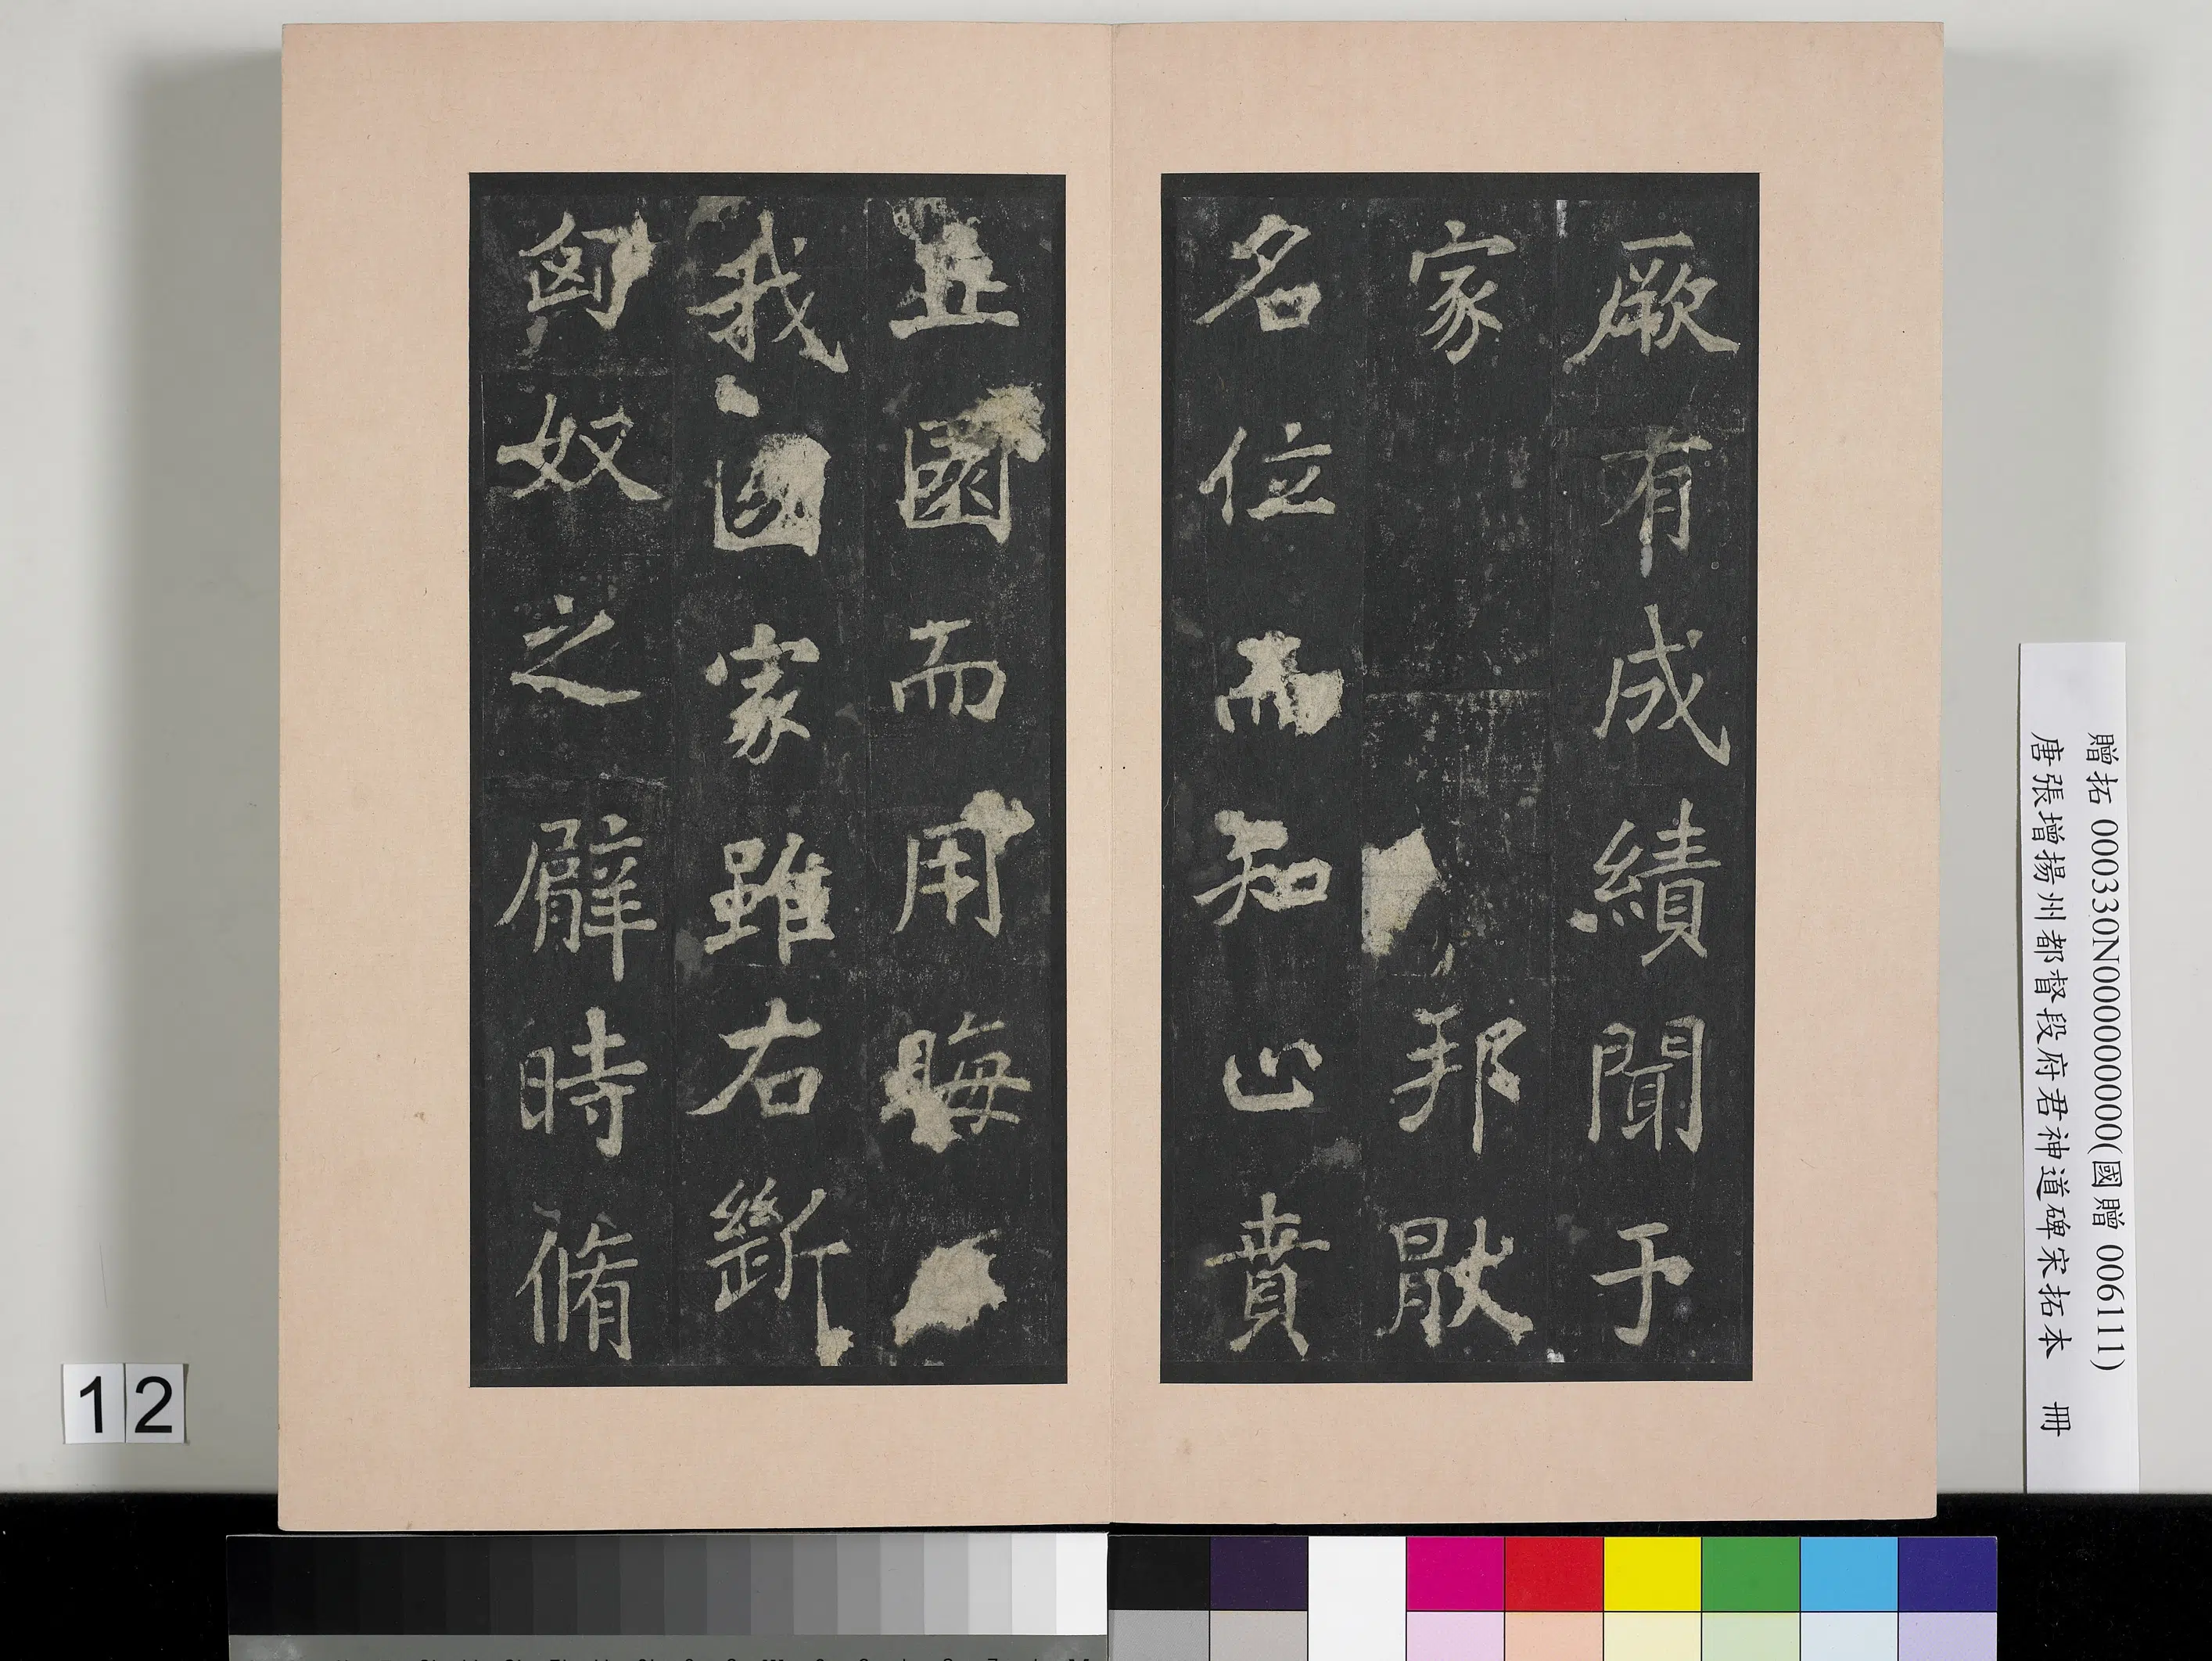 厥有成績聞于
家邦猒
名位而知止賁
丘園而用晦
我國家雖右斷
匈奴之臂時脩
贈拓 000330N000000000(國贈 006111)
唐張增揚州都督段府君神道碑宋拓本 冊
12